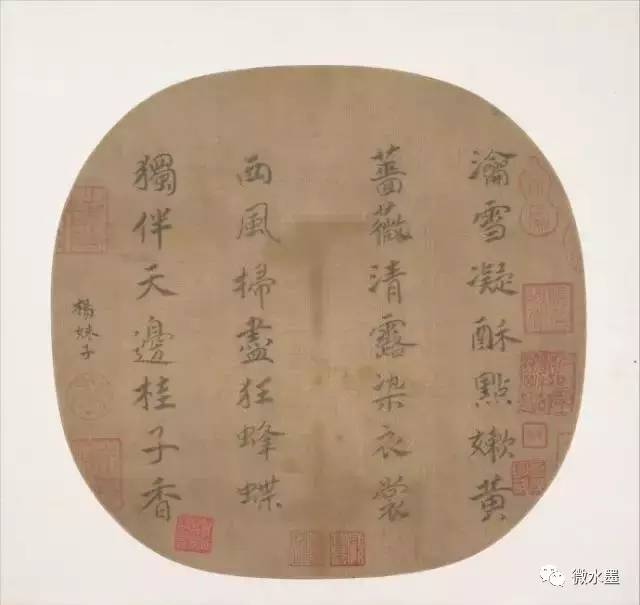 瀹雪凝酥點嫰黃
薔薇清露染衣裳
西風掃盡狂蜂蝶
獨伴天邊桂子香
楊妹子
微水墨